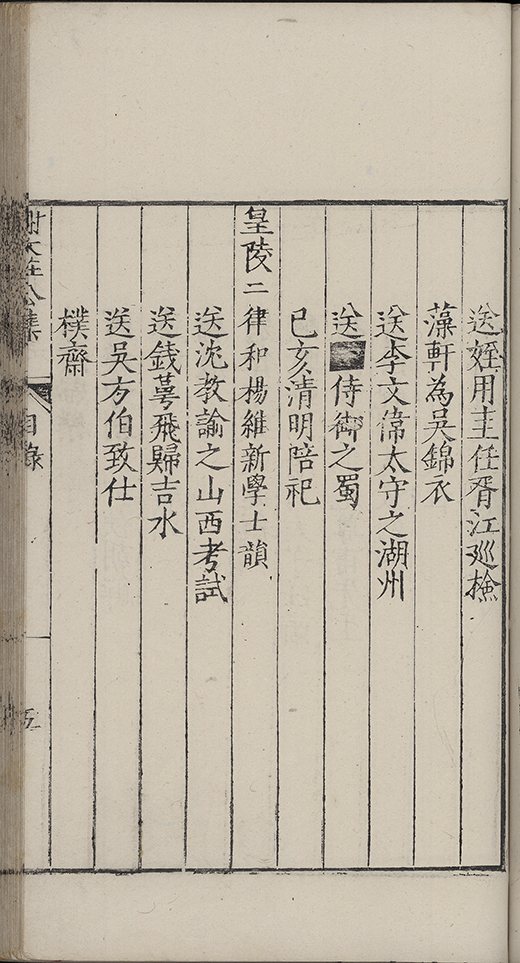 送姪用主任胥江廵撿
藻軒為吳錦衣
送李文偉太守之湖州
送侍御之蜀
己亥清明陪祀
皇陵二律和楊維新學士韻
送沈教諭之山西考試
送錢萼飛歸吉水
送吳方伯致仕
樸齋
謝文莊公集
目錄
五